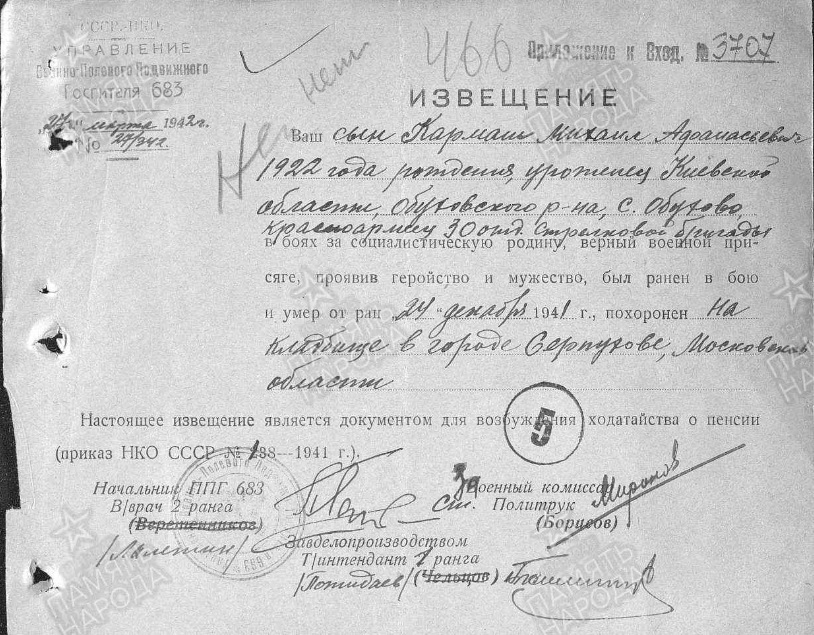 СССР-НКО.
УПРАВЛЕНИЕ
Военно-Полевого Подвижного
Госпиталя 683
"27" марта 1942г.
No 27/342.
нет
нет
466
Приложение к Вход. № 3707
ИЗВЕЩЕНИЕ
Ваш сын Кармаш Михаил Афанасьевич
1922 года рождения, уроженец Киевской
области, Обуховского р-на, с. Обухово,
красноармеец 30 отд. стрелковой бригады
в боях за социалистическую родину, верный военной при-
сяге, проявив геройство и мужество, был ранен в бою
и умер от ран "24" декабря 1941 г., похоронен на
кладбище в городе Серпухове, Московской
области
Настоящее извещение является документом для возбуждения ходатайства о пенсии
(приказ НКО СССР № 138—1941 г.).
5
Начальник ППГ 683
В/врач 2 ранга
(Веретенников)
За Военный комиссар
ст. Политрук
(Борисов)
Миронов
Завделопроизводством
Т/интендант 2 ранга
/Пожидаев/ (Чельцов)
ПАМЯТЬ НАРОДА